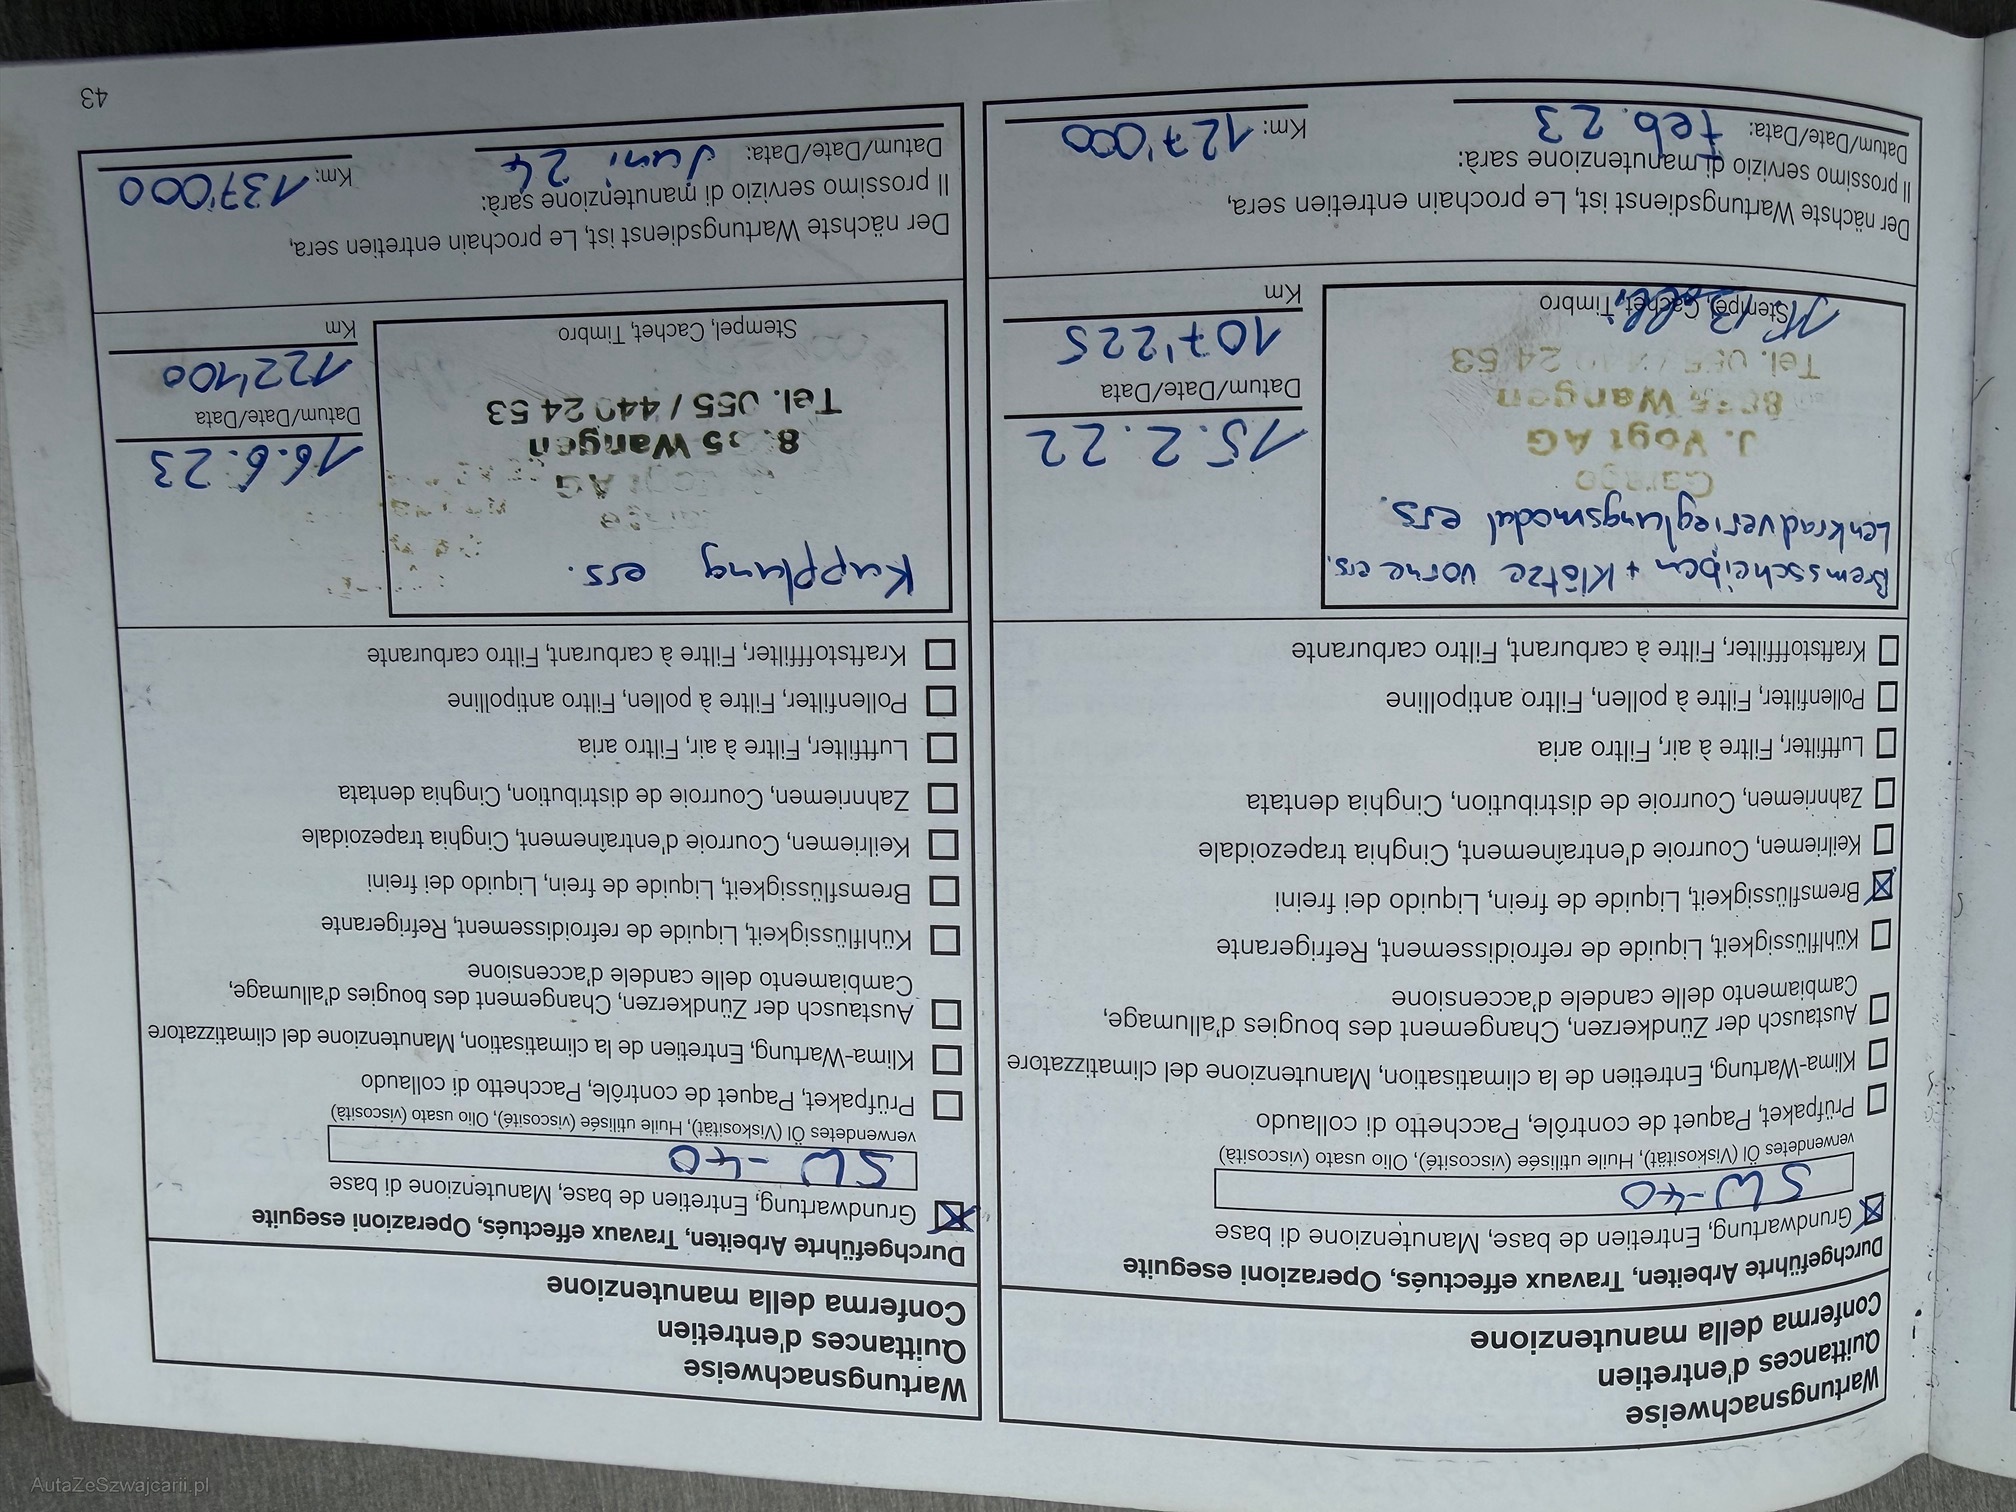 Wartungsnachweise
Quittances d'entretien
Conferma della manutenzione
Durchgeführte Arbeiten, Travaux effectués, Operazioni eseguite
Grundwartung, Entretien de base, Manutenzione di base
5W-40
verwendetes Öl (Viskosität), Huile utilisée (viscosité), Olio usato (viscosità)
Prüfpaket, Paquet de contrôle, Pacchetto di collaudo
Klima-Wartung, Entretien de la climatisation, Manutenzione del climatizzatore
Austausch der Zündkerzen, Changement des bougies d'allumage,
Cambiamento delle candele d'accensione
Kühlflüssigkeit, Liquide de refroidissement, Refrigerante
Bremsflüssigkeit, Liquide de frein, Liquido dei freini
Keilriemen, Courroie d'entraînement, Cinghia trapezoidale
Zahnriemen, Courroie de distribution, Cinghia dentata
Luftfilter, Filtre à air, Filtro aria
Pollenfilter, Filtre à pollen, Filtro antipolline
Kraftstofffilter, Filtre à carburant, Filtro carburante
Bremsscheiben + Klötze vorne ers.
Lenkradverieglungsmodul ers.
Garage
J. Vogt AG
8855 Wangen
Tel. 055 / 440 24 53
Stempel, Cachet, Timbro
15.2.22
Datum/Date/Data
107'225
Km
Der nächste Wartungsdienst ist, Le prochain entretien sera,
Il prossimo servizio di manutenzione sarà:
Datum/Date/Data: Feb. 23 Km: 127'000
Wartungsnachweise
Quittances d'entretien
Conferma della manutenzione
Durchgeführte Arbeiten, Travaux effectués, Operazioni eseguite
Grundwartung, Entretien de base, Manutenzione di base
5W-40
verwendetes Öl (Viskosität), Huile utilisée (viscosité), Olio usato (viscosità)
Prüfpaket, Paquet de contrôle, Pacchetto di collaudo
Klima-Wartung, Entretien de la climatisation, Manutenzione del climatizzatore
Austausch der Zündkerzen, Changement des bougies d'allumage,
Cambiamento delle candele d'accensione
Kühlflüssigkeit, Liquide de refroidissement, Refrigerante
Bremsflüssigkeit, Liquide de frein, Liquido dei freini
Keilriemen, Courroie d'entraînement, Cinghia trapezoidale
Zahnriemen, Courroie de distribution, Cinghia dentata
Luftfilter, Filtre à air, Filtro aria
Pollenfilter, Filtre à pollen, Filtro antipolline
Kraftstofffilter, Filtre à carburant, Filtro carburante
Kupplung ers.
AG
Wangen
Tel. 055 / 440 24 53
Stempel, Cachet, Timbro
16.6.23
Datum/Date/Data
122'100
Km
Der nächste Wartungsdienst ist, Le prochain entretien sera,
Il prossimo servizio di manutenzione sarà:
Datum/Date/Data: Juni 24 Km: 137'000
43
AutaZeSzwajcarii.pl